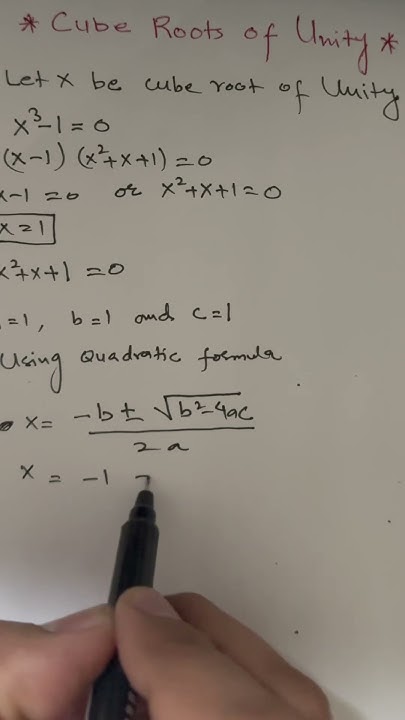 * Cube Roots of Unity *
Let x be cube root of Unity
x³-1=0
(x-1) (x²+x+1)=0
x-1 =0 or x²+x+1=0
x=1
x²+x+1 =0
=1, b=1 and c=1
Using Quadratic formula
x= -b ± √b²-4ac / 2a
x = -1